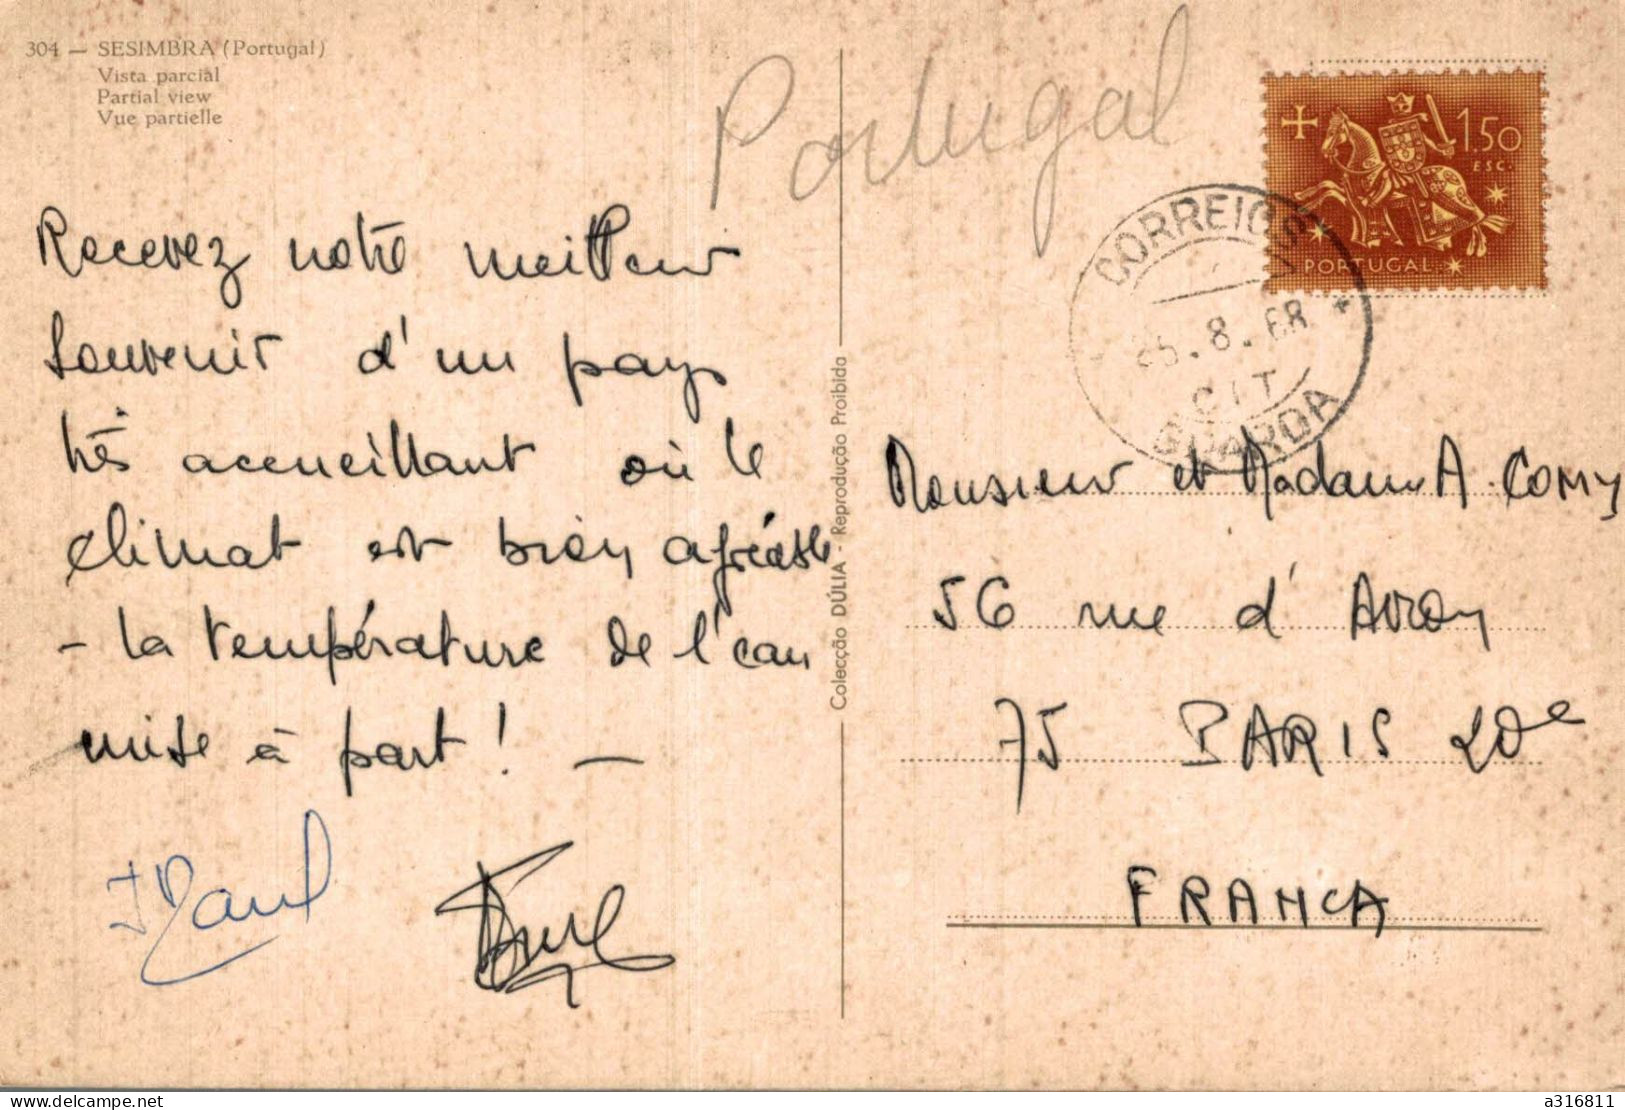 304 — SESIMBRA (Portugal)
Vista parcial
Partial view
Vue partielle
Portugal
1.50
ESC.
PORTUGAL
CORREIOS
25.8.68
GUARDA
Recevez notre meilleur
souvenir d'un pays
très accueillant où le
climat est bien agréable
- la température de l'eau
mise à part ! —
Colecção DÚLIA - Reprodução Proibida
Monsieur et Madame A. COMY
56 rue d'Avron
75 PARIS 20e
FRANCA
delcampe.net
a316811